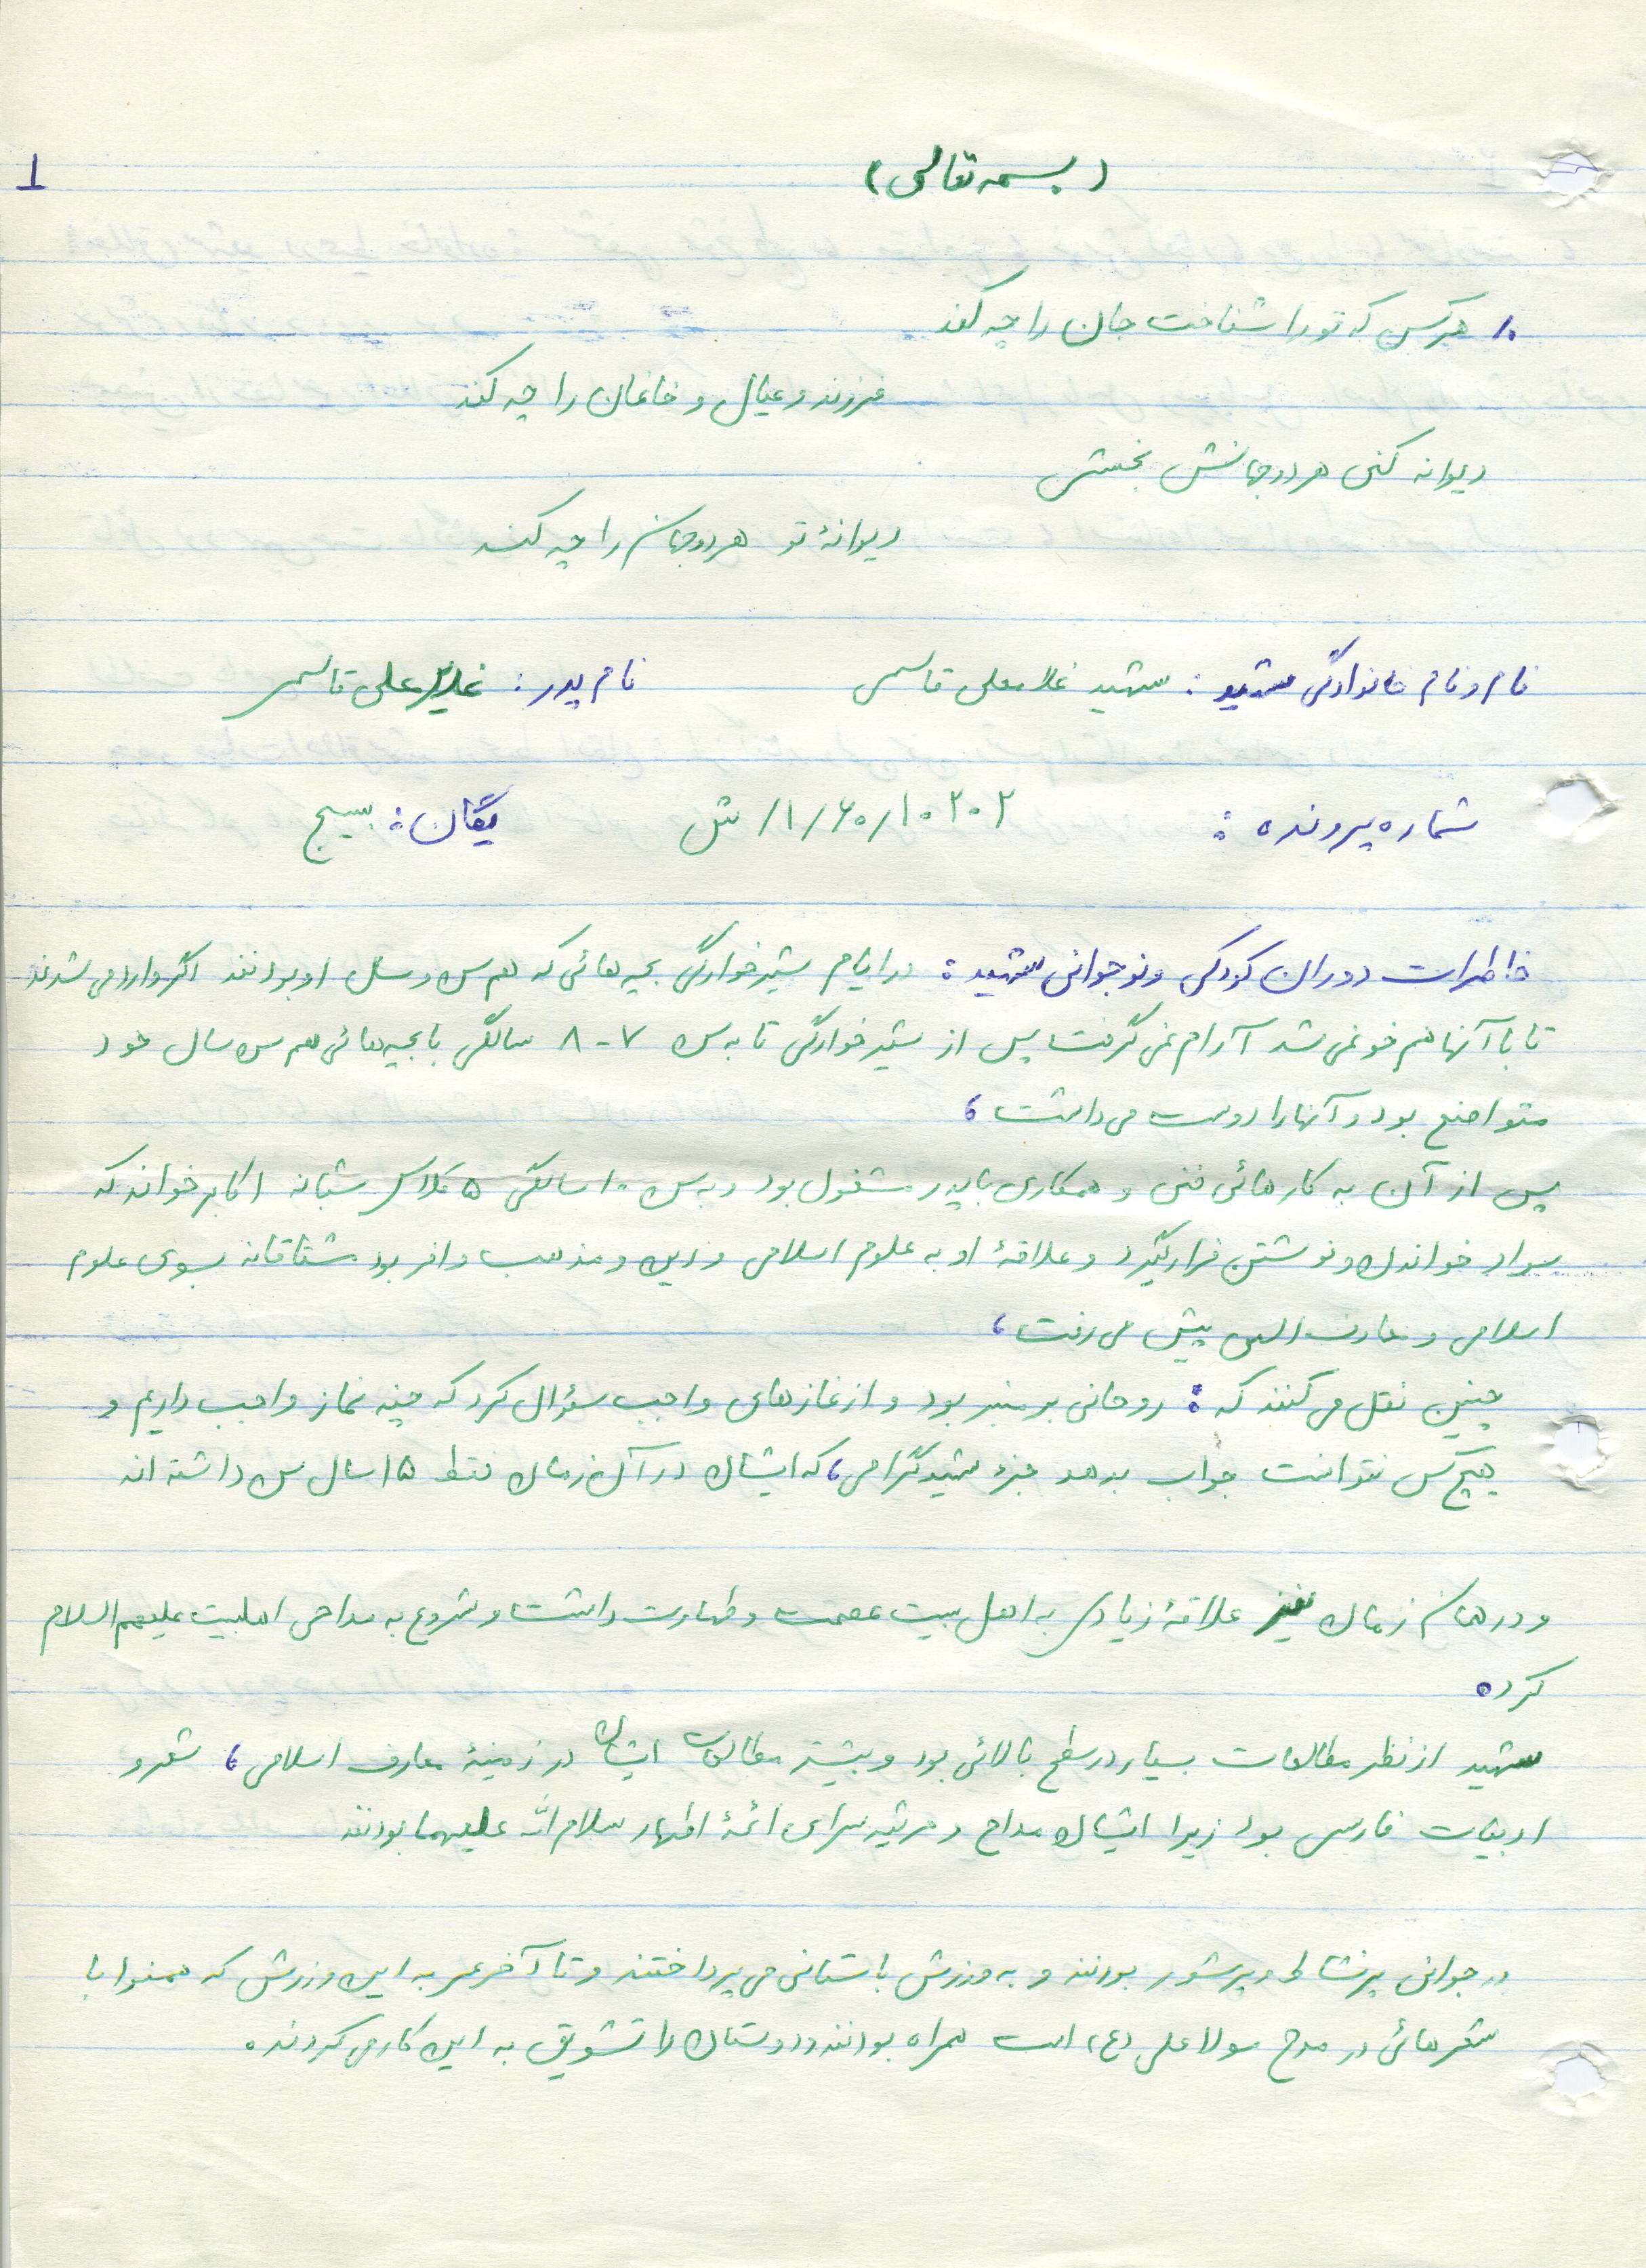 (بسمه تعالی)
1
۱۰ هرکس که تو را شناخت جان را چه کند
فرزند و عیال و خانمان را چه کند
دیوانه کنی هر دو جهانش بخشی
دیوانهٔ تو هر دو جهان را چه کند
نام و نام خانوادگی شهید : شهید غلامعلی قاسمی نام پدر : علی قاسمی
شماره پرونده : ۱۰۲۰۲/۶۰/۱/ش یگان : بسیج
خاطرات دوران کودکی و نوجوانی شهید : در ایام شیرخوارگی بچه هائی که هم سن و سال او بودند اگر وارد می شدند
تا با آنها هم خو نمی شد آرام نمی گرفت پس از شیرخوارگی تا به سن ۷-۸ سالگی با بچه هائی هم سن سال خود
متواضع بود و آنها را دوست می داشت ،
پس از آن به کارهائی فنی و همکاری با پدر مشغول بود و به سن ۱۰ سالگی ۵ کلاس شبانه اکابر خواند که
سواد خواندن و نوشتن فرا گیرد و علاقهٔ او به علوم اسلامی و دین و مذهب وافر بود مشتاقانه بسوی علوم
اسلامی و معارف الهی پیش می رفت ،
چنین نقل می کنند که : روحانی بر منبر بود و از نمازهای واجب سؤال کرد که چند نماز واجب داریم و
هیچ کس نتوانست جواب بدهد جزء شهید گرامی ، که ایشان در آن زمان فقط ۱۵ سال سن داشته اند
و در همان زمان نیز علاقهٔ زیادی به اهل بیت عصمت و طهارت داشت و شروع به مداحی اهلبیت علیهم السلام
کرد.
شهید از نظر مطالعات بسیار در سطح بالائی بود و بیشتر مطالعات ایشان در زمینهٔ معارف اسلامی ، شعر و
ادبیات فارسی بود زیرا ایشان مداح و مرثیه سرای ائمهٔ اطهار سلام الله علیهما بودند
در جوانی پرنشاط و پرشور بودند و به ورزش باستانی می پرداختند و تا آخر عمر به این ورزش که همنوا با
شعرهائی در مدح مولا علی (ع) است همراه بودند و دوستان را تشویق به این کار می کردند.